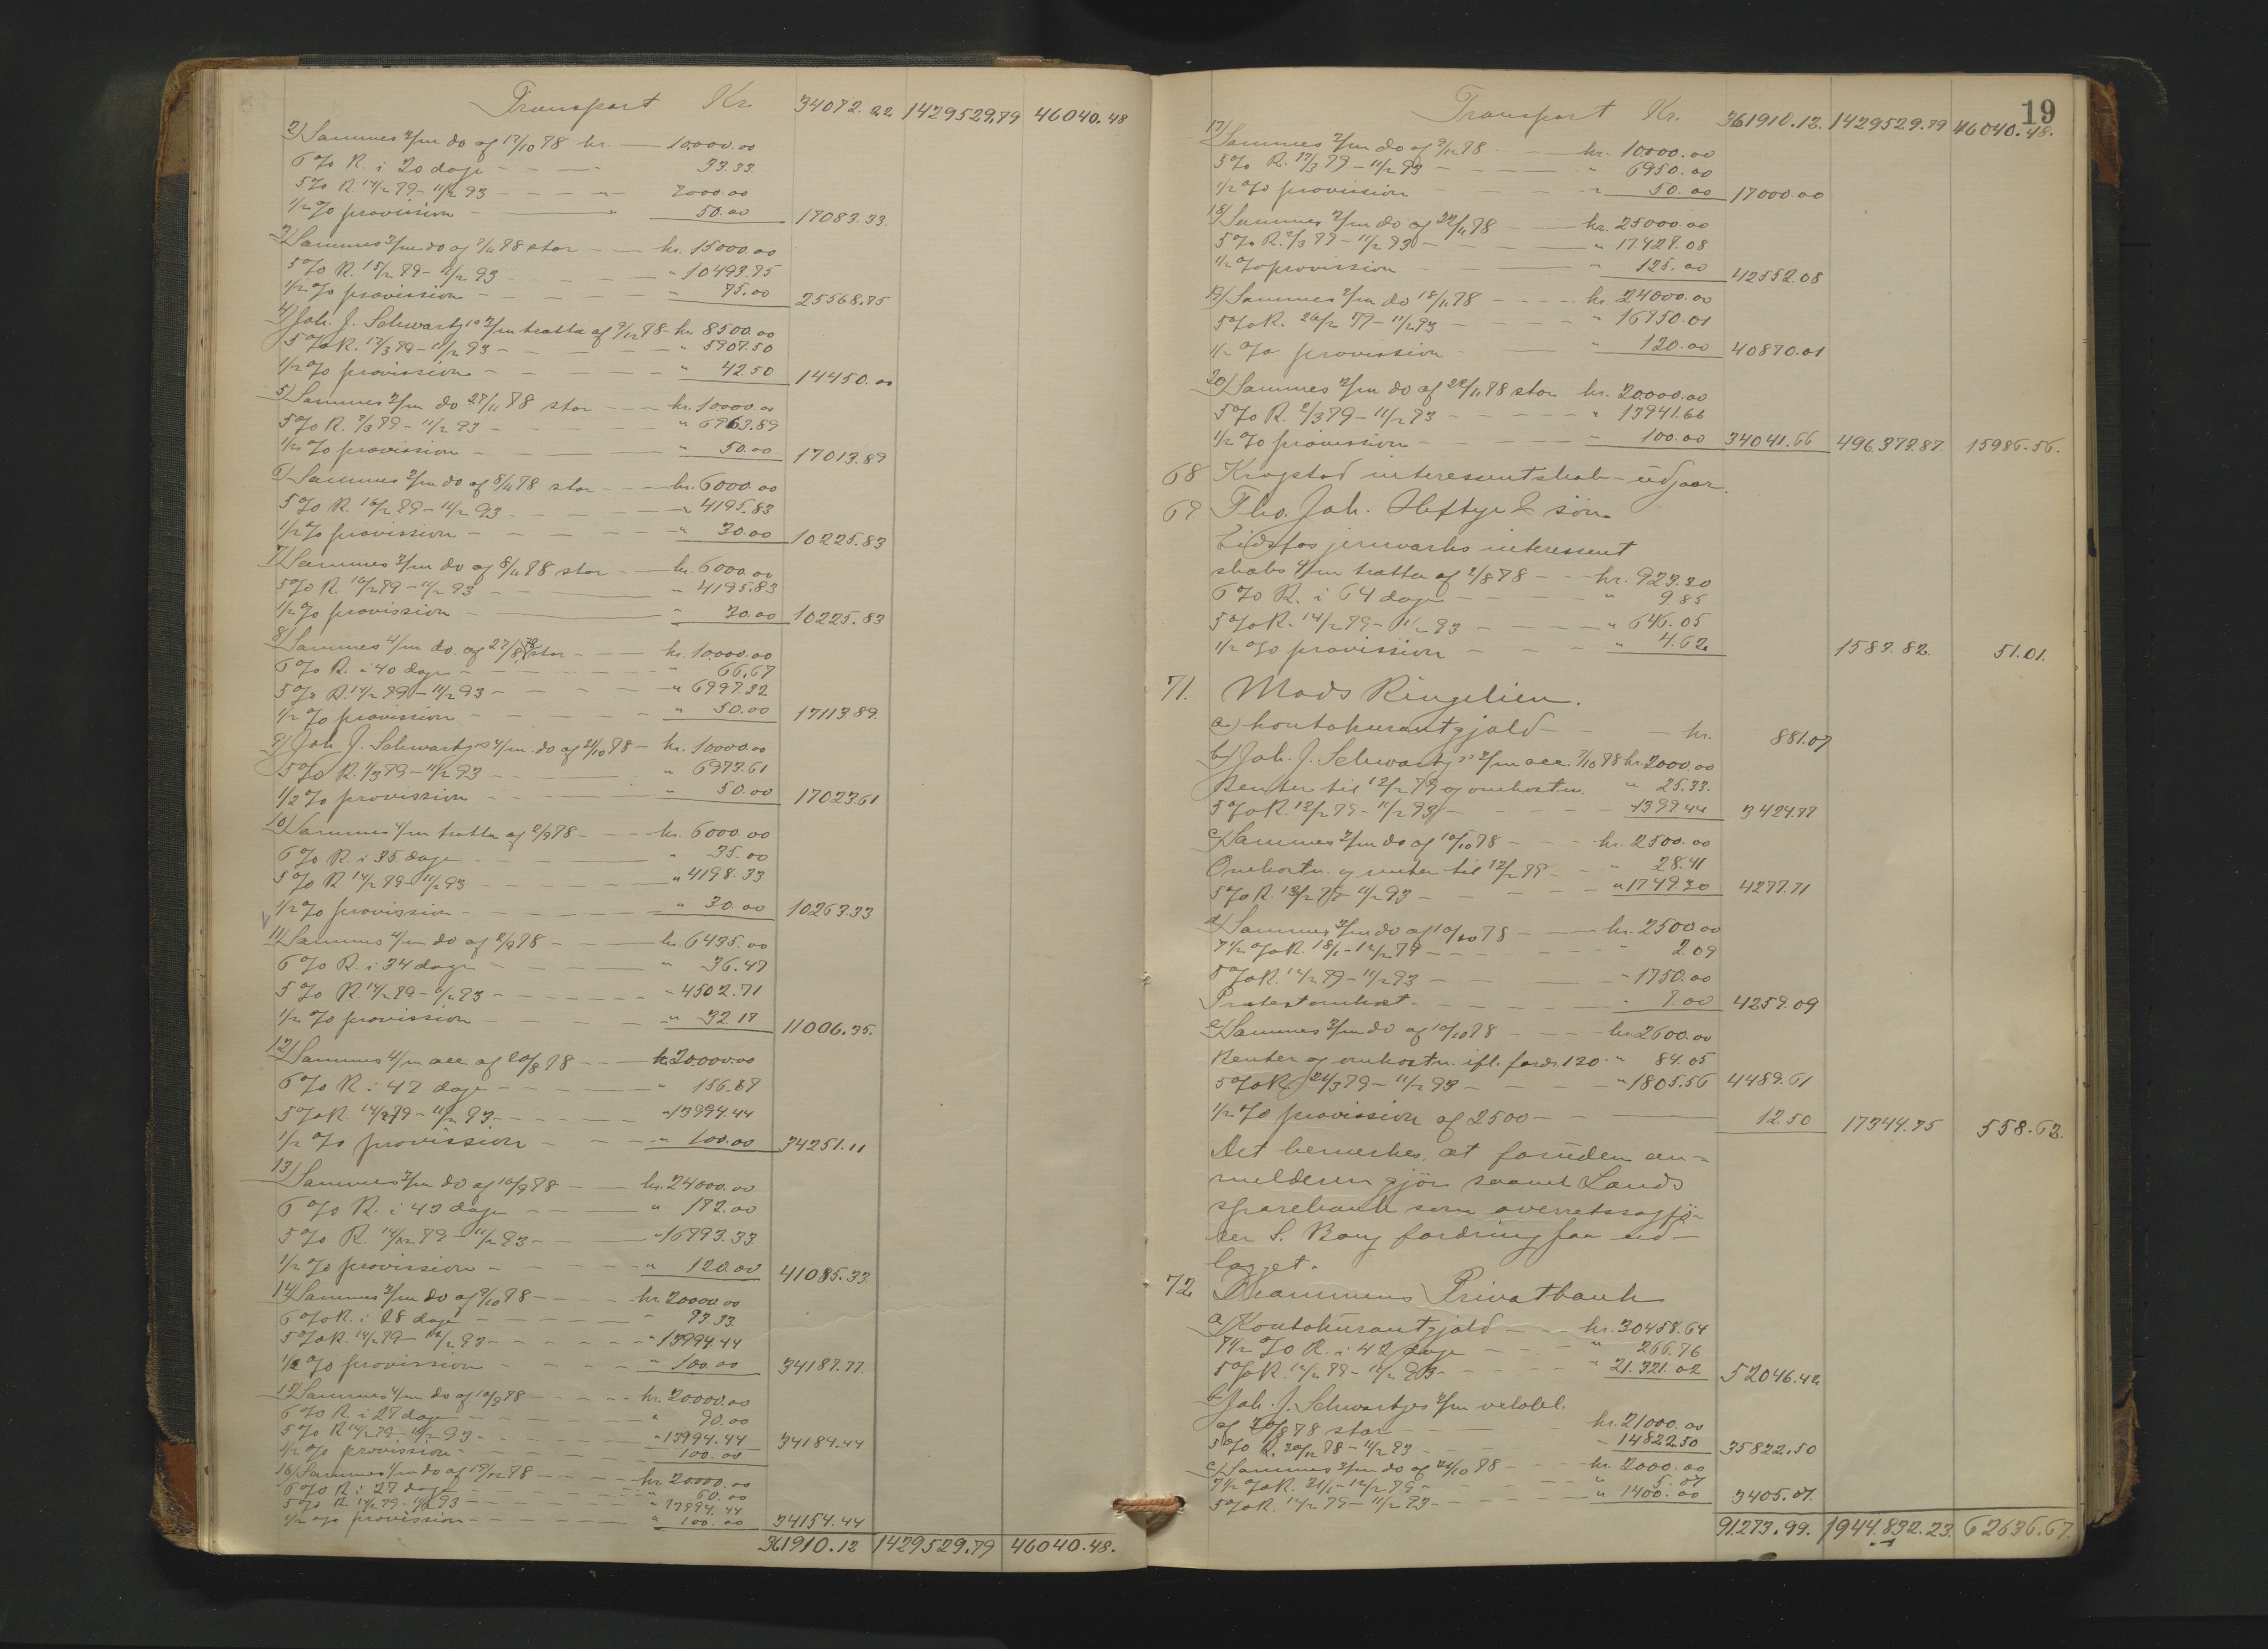 Transport Kr. 34072.22 1429529.79 46040.48
2) Sammes 3/m do af 17/10 78 kr. 10000.00
6 % R. i 20 dage 33.33
5 % R. 14/2 79 - 11/2 93 7000.00
1/2 % provission 50.00 17083.33.
3) Sammes 3/m do af 7/11 78 stor kr. 15000.00
5 % R. 15/2 79 - 11/2 93 " 10493.75
1/2 % provission " 75.00 25568.75
4) Joh. J. Schwartz's 3/m tratta af 9/12 78 kr. 8500.00
5 % R. 12/3 79 - 11/2 93 " 5907.50
1/2 % provission " 42.50 14450.00
5) Sammes 3/m do 27/11 78 stor kr. 10000.00
5 % R. 7/3 79 - 11/2 93 " 6963.89
1/2 % provission " 50.00 17013.89
6) Sammes 3/m do af 8/11 78 stor kr. 6000.00
5 % R. 16/2 79 - 11/2 93 " 4195.83
1/2 % provission " 30.00 10225.83
7) Sammes 3/m do af 8/11 78 stor kr. 6000.00
5 % R. 16/2 79 - 11/2 93 " 4195.83
1/2 % provission " 30.00 10225.83
8) Sammes 4/m do af 27/8 78 stor kr. 10000.00
6 % R. i 40 dage " 66.67
5 % R. 14/2 79 - 11/2 93 " 6997.22
1/2 % provission " 50.00 17113.89.
9) Joh. J. Schwartz's 4/m do af 21/10 78 kr. 10000.00
5 % R. 1/3 79 - 11/2 93 " 6973.61
1/2 % provission " 50.00 17023.61
10) Sammes 4/m tratta af 2/9 78 kr. 6000.00
6 % R. i 35 dage " 35.00
5 % R. 14/2 79 - 11/2 93 " 4198.33
1/2 % provission " 30.00 10263.33
11) Sammes 4/m do af 2/9 78 kr. 6435.00
6 % R. i 34 dage " 36.47
5 % R. 14/2 79 - 11/2 93 " 4502.71
1/2 % provission " 32.17 11006.35.
12) Sammes 4/m acc af 20/8 78 kr. 20000.00
6 % R. i 47 dage " 156.67
5 % R. 14/2 79 - 11/2 93 " 13994.44
1/2 % provission " 100.00 34251.11
13) Sammes 3/m do af 10/9 78 kr. 24000.00
6 % R. i 43 dage " 172.00
5 % R. 14/2 79 - 11/2 93 " 16793.33.
1/2 % provission " 120.00 41085.33.
14) Sammes 3/m do af 9/10 78 kr. 20000.00
6 % R. i 28 dage " 93.33.
5 % R. 14/2 79 - 11/2 93 " 13994.44
1/2 % provission " 100.00 34187.77.
15) Sammes 4/m do af 10/9 78 kr. 20.000.00
6 % R. i 27 dage " 90.00
5 % R. 14/2 79 - 11/2 93 " 13994.44 34184.44
1/2 % provission 100.00
16) Sammes 4/m do af 19/10 78 kr. 20000.00
6 % R. i 27 dage " 60.00
5 % R. 14/2 79 - 11/2 93 " 13994.44
1/2 % provission " 100.00 34154.44
361910.12 1429529.79 46040.48.
19
Transport Kr. 361910.12. 1429529.79 46040.48.
17) Sammes 3/m do af 9/12 78 kr. 10000.00
5 % R. 12/3 79 - 11/2 93 " 6950.00
1/2 % provission " 50.00 17000.00
18) Sammes 3/m do af 22/11 78 kr. 25000.00
5 % R. 2/3 79 - 11/2 93 " 17427.08
1/2 % provission " 125.00 42552.08
19) Sammes 3/m do 18/11 78 kr. 24000.00
5 % R. 26/2 79 - 11/2 93 " 16750.01
1/2 % provission " 120.00 40870.01
20) Sammes 3/m do af 22/11 78 stor kr. 20.000.00
5 % R. 2/3 79 - 11/2 93 " 13941.66
1/2 % provission " 100.00 34041.66 496.373.87. 15986.56.
68 Krogstad interessentskab - udgaar.
69 Tho. Joh. Heftye & søn
Eidsfos jernværks interessent
skabs 4/m tratta af 2/8 78 kr. 923.30
6 % R. i 64 dage " 9.85
5 % R. 14/2 79 - 11/2 93 " 646.05
1/2 % provission " 4.62 1583.82. 51.01.
71. Mads Ringelien.
a) kontokurantgjæld kr. 881.07
b) Joh. J. Schwartz's 3/m acc. 7/10 78 kr. 2000.00
Renter til 12/2 79 og omkostn. " 25.33.
5 % R. 12/2 79 - 11/2 93 1399.44 3424.77
c) Sammes 3/m do af 10/10 78 kr. 2500.00
Omkostn. og renter til 12/2 79 " 28.41
5 % R. 13/2 79 - 11/2 93 " 1749.30 4277.71
d) Sammes 3/m do af 10/10 78 kr. 2500.00
7 1/2 % R. 18/1 - 12/2 79 " 2.09
5 % R. 14/2 79 - 11/2 93 " 1750.00
Protestomkost " 7.00 4259.09
e) Sammes 3/m do af 10/10 78 kr. 2600.00
Renter og omkostn. ifl. fordr. 120 " 84.05
5 % R. 21/3 79 - 11/2 93 " 1805.56 4489.61
1/2 % provission af 2500 12.50 17344.75 558.63.
Det bemerkes, at foruden an-
melderen gjør saavel Lands
sparebank som overretssagfø-
rer S. Bang fordring paa ud-
lægget.
72. Drammens Privatbank
a) Kontokurantgjæld kr. 30458.64
7 1/2 % R. i 42 dage " 266.76
5 % R. 14/2 79 - 11/2 93 " 21.321.02 52046.42
b) Joh. J. Schwartzes 3/m
af 30/8 78 stor kr. 21000.00
5 % R. 30/12 78 - 11/2 93 " 14822.50 35822.50
c) Sammes 3/m do af 21/10 78 kr. 2000.00
7 1/2 % R. 21/1 - 14/2 79 " 5.07
5 % R. 14/2 79 - 11/2 93 " 1400.00 3405.07.
91.273.99. 1944.832.23. 62636.67.